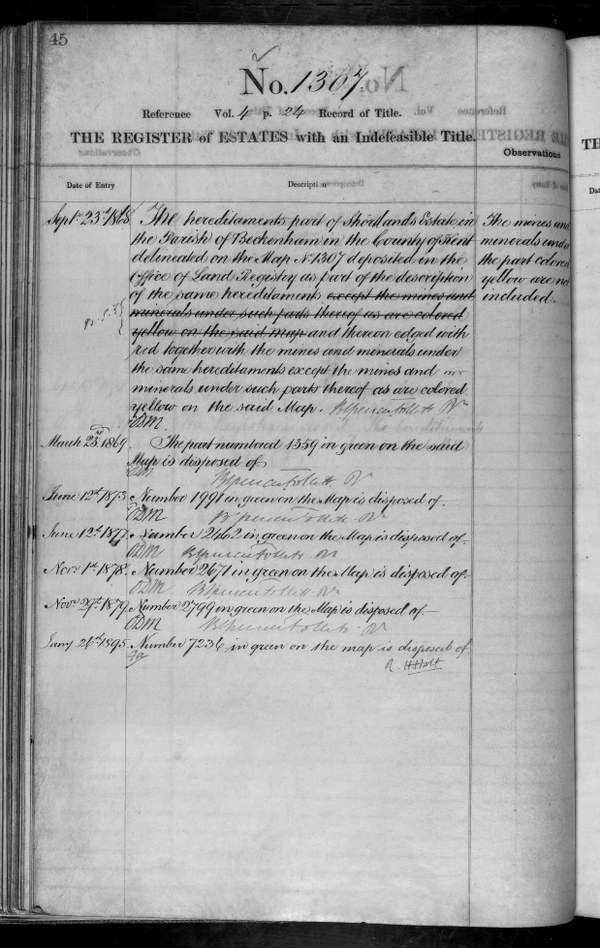 45
No. 1307.
Reference Vol. 4 p. 24 Record of Title.
THE REGISTER of ESTATES with an Indefeasible Title.
Observations
Date of Entry
Description
Septr 23rd 1868
The hereditaments part of Shortlands Estate in
the Parish of Beckenham in the County of Kent
delineated on the Map No 1307 deposited in the
Office of Land Registry as part of the description
of the same hereditaments except the mines and
minerals under such parts thereof as are colored
yellow on the said map and thereon edged with
red together with the mines and minerals under
the same hereditaments except the mines and
minerals under such parts thereof as are colored
yellow on the said Map. B Spencer Follett Rr
ODM.
The mines and
minerals under
the part colored
yellow are not
included.
March 23rd 1869. The part numbered 1359 in green on the said
Map is disposed of
B Spencer Follett Rr
June 12th 1873 Number 1991 in green on the Map is disposed of.
ODM B Spencer Follett Rr
June 12th 1877 Number 2462 in green on the Map is disposed of.
ODM B Spencer Follett Rr
Novr 1st 1878. Number 2671 in green on the Map is disposed of.
ODM B Spencer Follett Rr
Novr 29th 1879. Number 2799 in green on the Map is disposed of.
ODM B Spencer Follett Rr
Jany 26th 1895. Number 7236, in green on the map is disposed of
R. H. Holt
TH
Dat